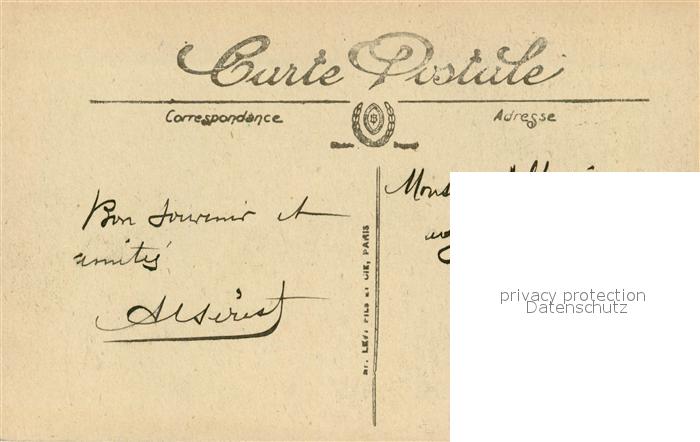 Carte Postale
Correspondance
Adresse
Bon souvenir et
amitiés
LEVY FILS ET CIE, PARIS
privacy protection
Datenschutz